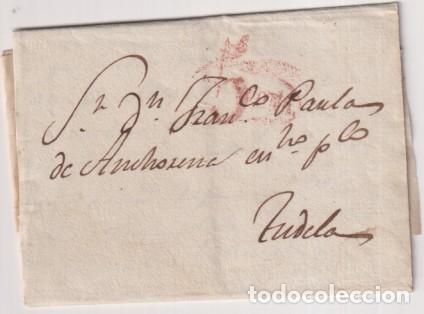 S.r D.n Fran.co Paula
de Anchorena en n.ro p.lo
Tudela
todocoleccion.net